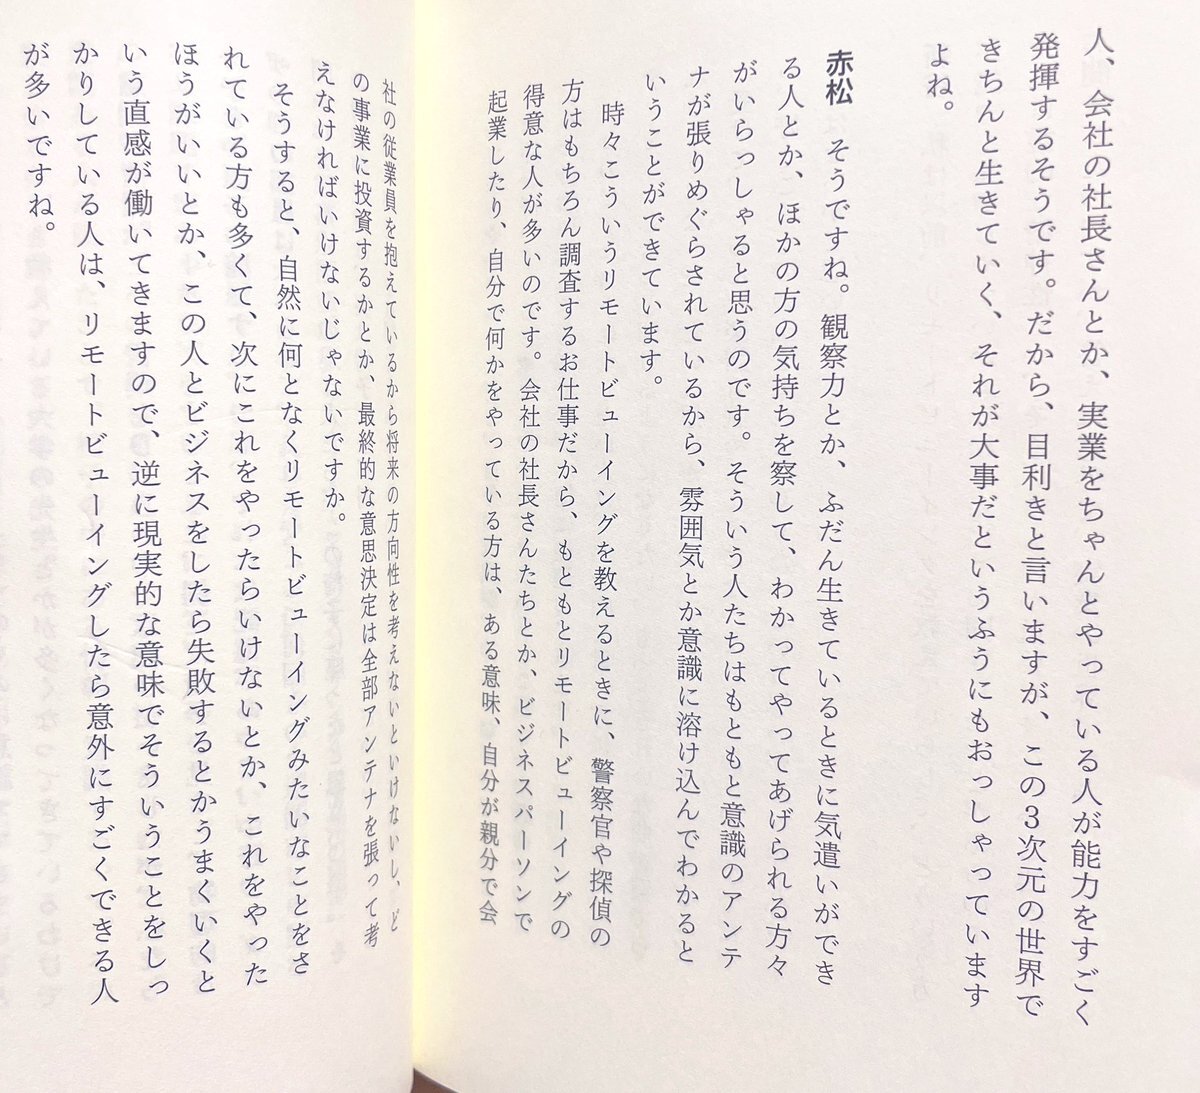 人、会社の社長さんとか、実業をちゃんとやっている人が能力をすごく
発揮するそうです。だから、目利きと言いますが、この3次元の世界で
きちんと生きていく、それが大事だというふうにもおっしゃっています
よね。
赤松　そうですね。観察力とか、ふだん生きているときに気遣いができ
る人とか、ほかの方の気持ちを察して、わかってやってあげられる方々
がいらっしゃると思うのです。そういう人たちはもともと意識のアンテ
ナが張りめぐらされているから、雰囲気とか意識に溶け込んでわかると
いうことができています。
　時々こういうリモートビューイングを教えるときに、警察官や探偵の
方はもちろん調査するお仕事だから、もともとリモートビューイングの
得意な人が多いのです。会社の社長さんたちとか、ビジネスパーソンで
起業したり、自分で何かをやっている方は、ある意味、自分が親分で会
社の従業員を抱えているから将来の方向性を考えないといけないし、ど
の事業に投資するかとか、最終的な意思決定は全部アンテナを張って考
えなければいけないじゃないですか。
　そうすると、自然に何となくリモートビューイングみたいなことをさ
れている方も多くて、次にこれをやったらいけないとか、これをやった
ほうがいいとか、この人とビジネスをしたら失敗するとかうまくいくと
いう直感が働いてきますので、逆に現実的な意味でそういうことをしっ
かりしている人は、リモートビューイングしたら意外にすごくできる人
が多いですね。